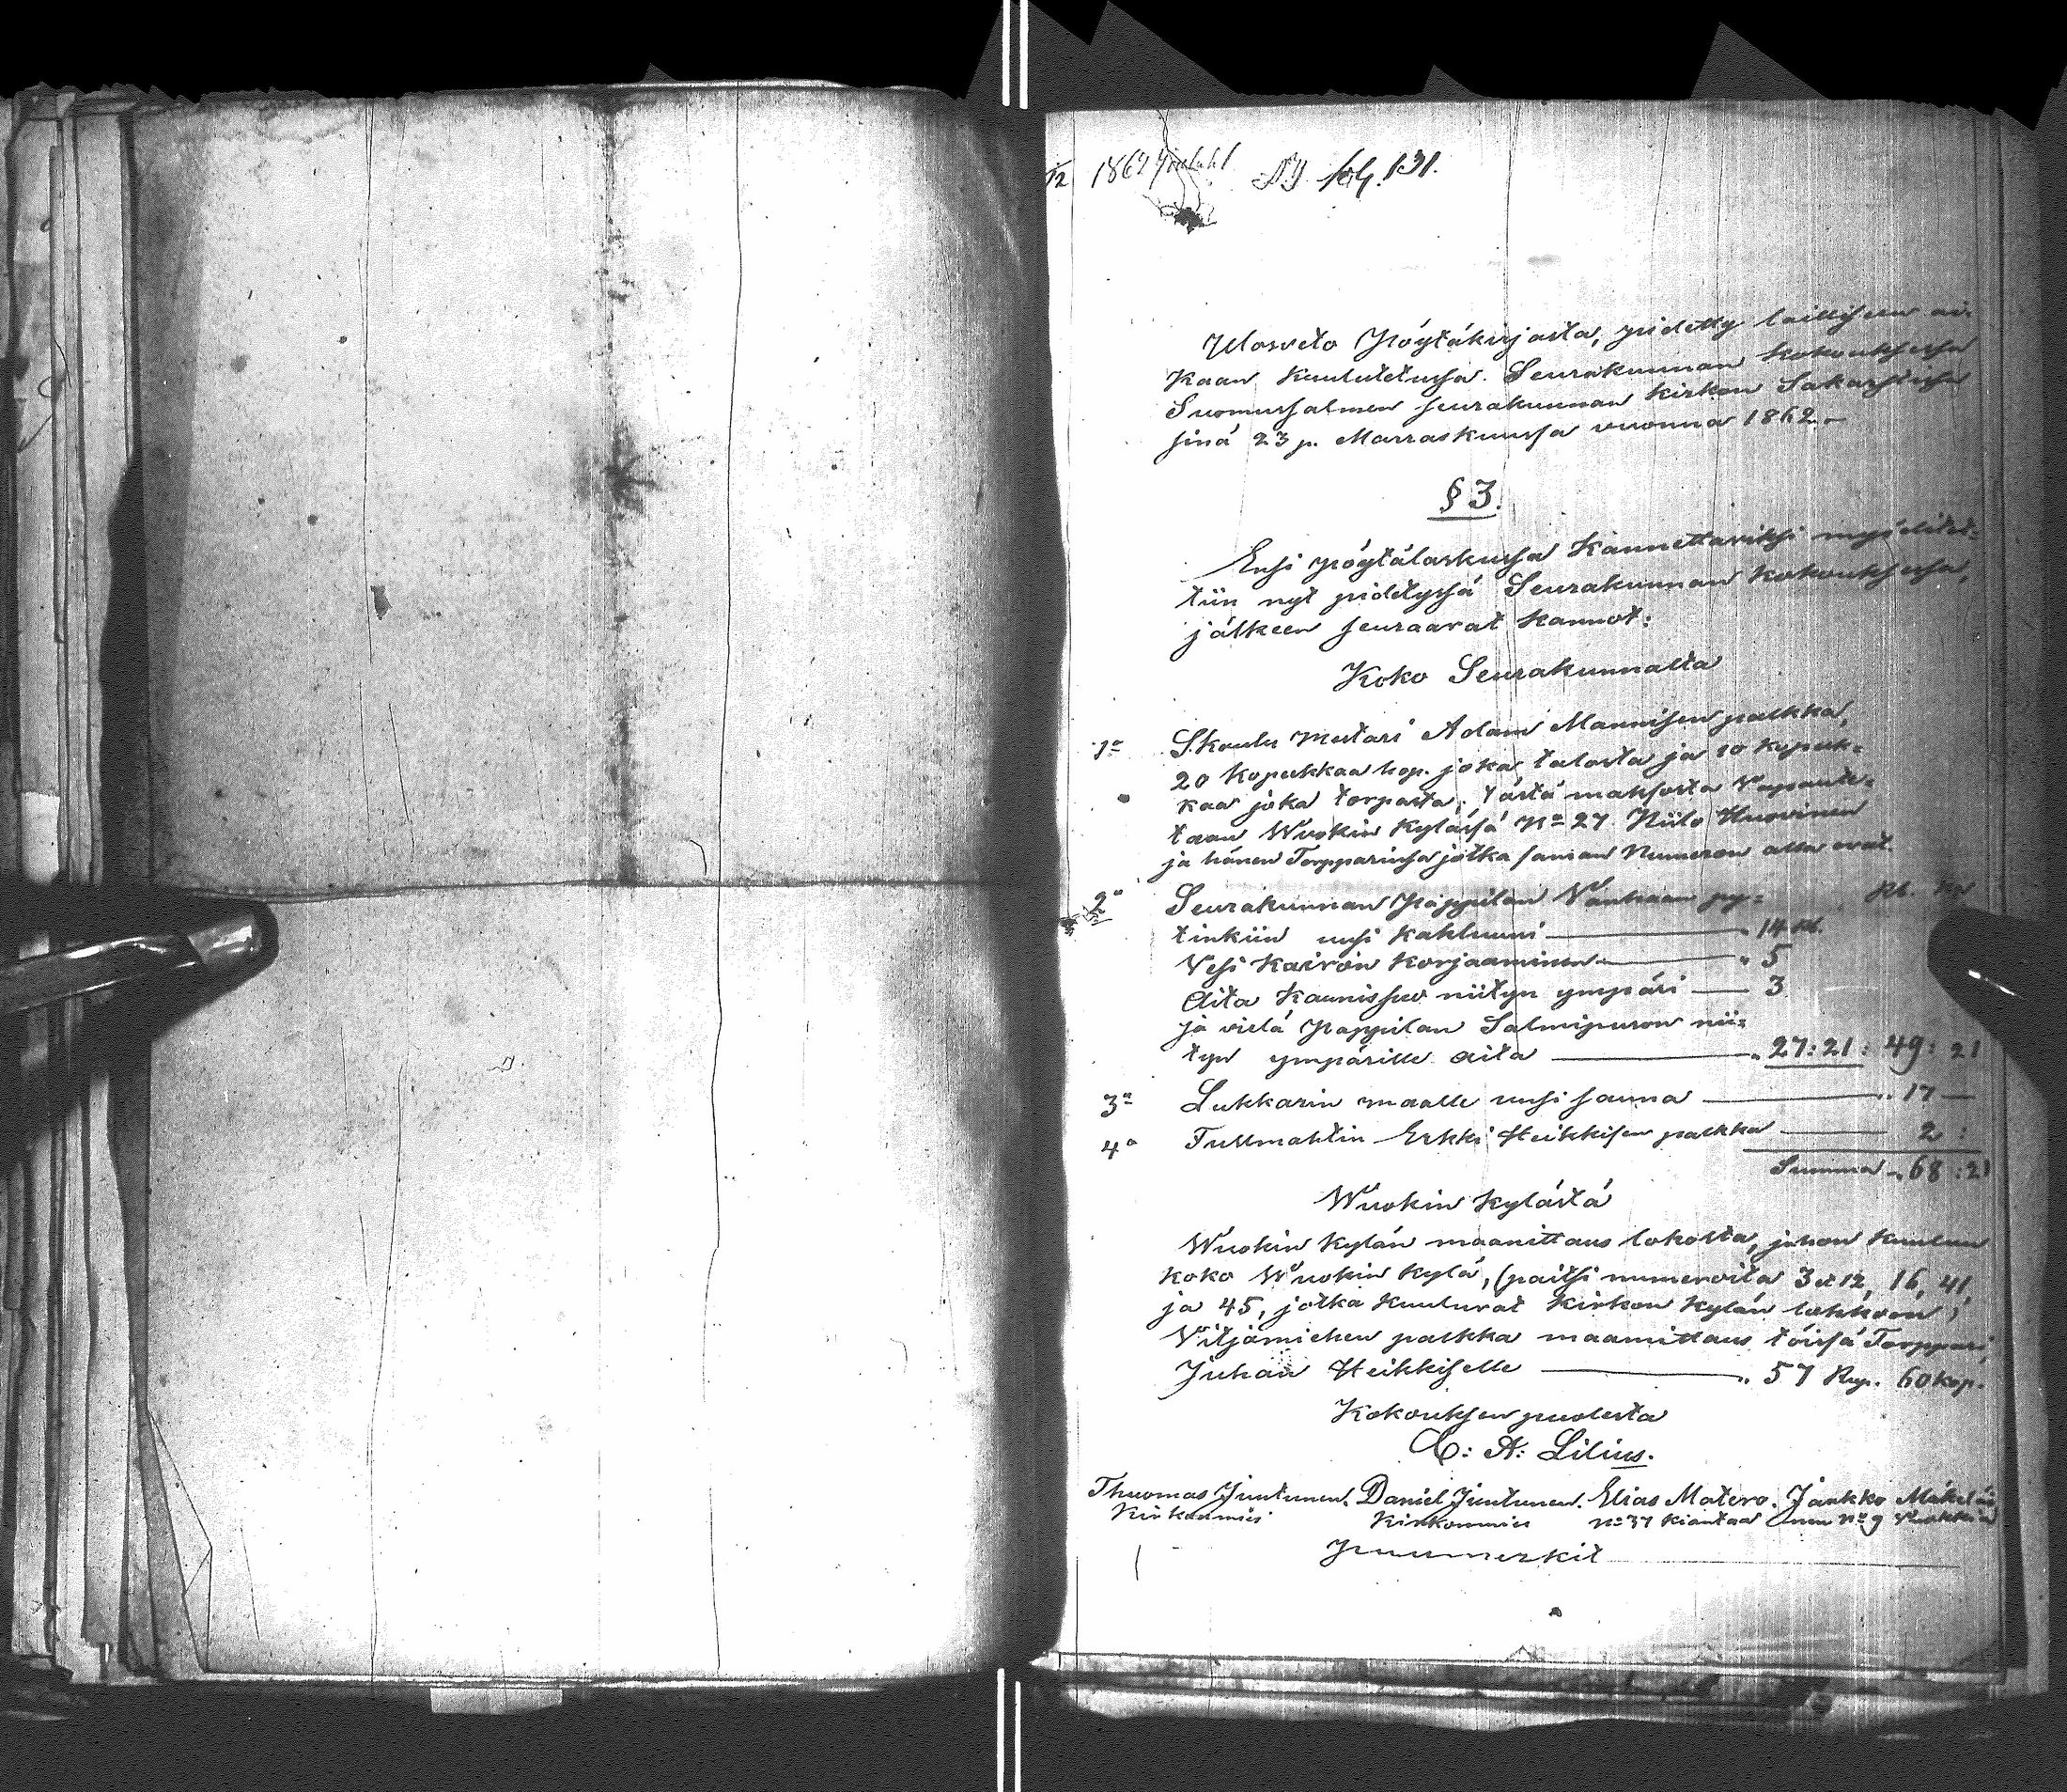 1862 fol. 131.
Ulosveto Pöytäkirjasta, pidetty laillisen ai-
kaan kuulutetussa Seurakunnan kokouksessa
Suomussalmen seurakunnan kirkon Sakastissa
sinä 23 p. Marraskuussa vuonna 1862.-
§ 3.
Ensi pöytälaskussa kannettaviksi myödität-
tiin nyt pidetyssä Seurakunnan kokouksessa,
jälkeen seuraavat kannot:
Koko Seurakunnalta
1o S.koulu mestari Adam Mannisen palkka,
20 kopeekkaa hop. joka talosta ja 10 kopeek-
kaa joka torpasta. Tästä maksosta vapaute-
taan Wuokin kylässä No 27 Niilo Huovinen
ja hänen Torpparinsa jotka saman Numeron alla ovat.
2o Seurakunnan Pappilan Vanhaan py- Rb. Ko
tinkiin uusi kakluuni — 14 Rb.
Vesi kaivon korjaaminen — " 5
Aita Kaunissuo niityn ympäri — 3
ja vielä Pappilan Salmipuron nii-
tyn ympärille aita — " 27:21: 49: 21
3o Lukkarin maalle uusi sauna — " 17 —
4o Tullmahtin Erkki Heikkisen palkka — 2:
Summa " 68:21
Wuokin kylästä
Wuokin kylän maanittaus lohosta, johon kuuluu
koko Wuokin kylä, (paitsi numeroita 3 et 12, 16, 41,
ja 45, jotka kuuluvat kirkon kylän lohkoon)
Viljämiehen palkka maamittaus töissä Torppari
Juhan Heikkiselle — " 57 Rup. 60 kop.
Kokouksen puolesta
C: A: Lilius.
Thuomas Juntunen. Daniel Juntunen. Elias Matero. Jaakko Mäkeläi
Kirkonmies Kirkonmies No 37 Kiantaa nen No 9 Vuokkia
Puumerkit